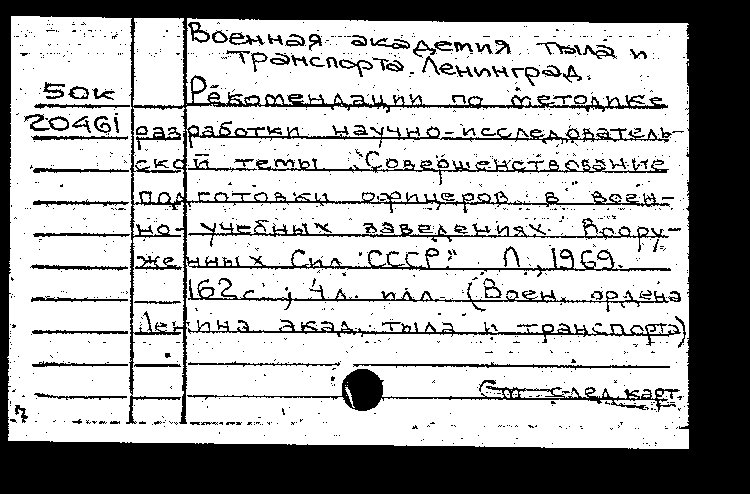 Военная академия тыла и
транспорта. Ленинград.
50к Рекомендации по методике
20461 разработки научно-исследователь-
ской темы "Совершенствование
подготовки офицеров в воен-
но-учебных заведениях Воору-
женных Сил СССР." Л., 1969.
162 с.; 4 л. илл. (Воен. ордена
Ленина акад. тыла и транспорта)
См след. карт.